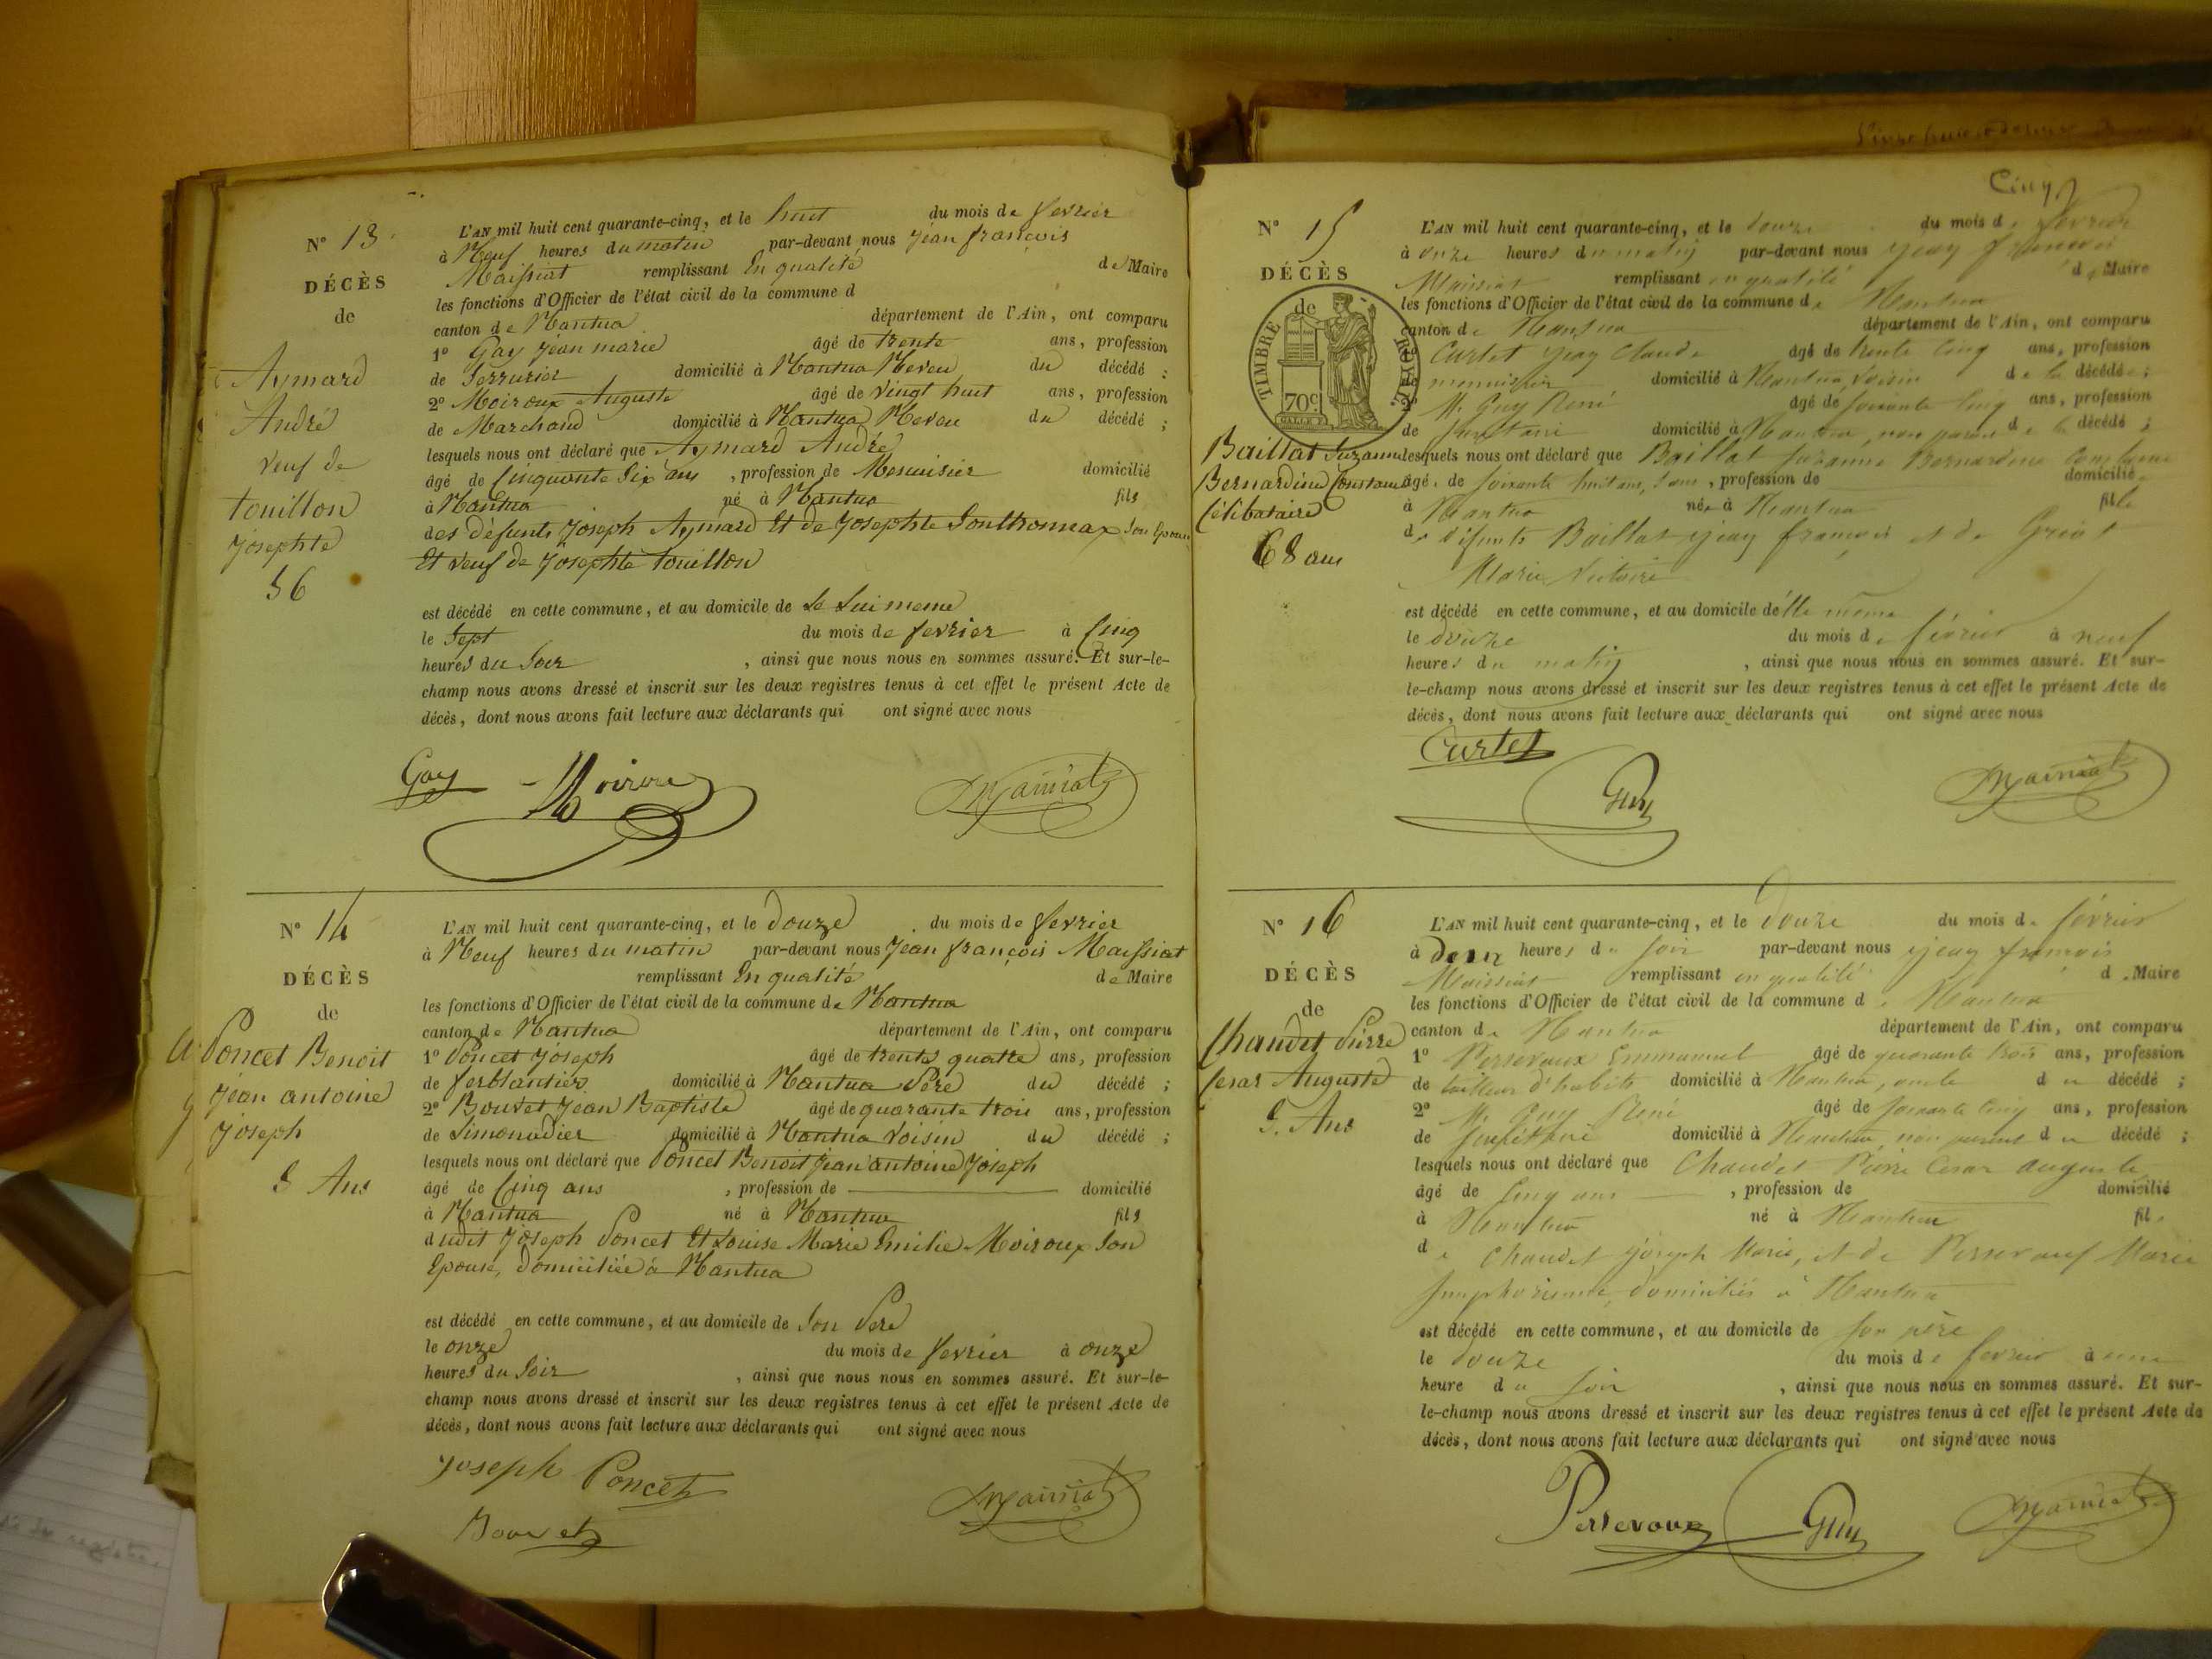 N° 13
DÉCÈS
de
Aymard
André
veuf de
touillon
Josephte
56
L'AN mil huit cent quarante-cinq, et le huit du mois de fevrier
à Neuf heures du matin par-devant nous Jean françois
Maissiat remplissant En qualité de Maire
les fonctions d'Officier de l'état civil de la commune d
canton de Nantua département de l'Ain, ont comparu
1° Gay Jean marie âgé de trente ans, profession
de Serrurier domicilié à Nantua Neveu du décédé ;
2° Moiroux Auguste âgé de vingt huit ans, profession
de Marchand domicilié à Nantua Neveu du décédé ;
lesquels nous ont déclaré que Aymard André
âgé de Cinquante Six ans , profession de Menuisier domicilié
à Nantua né à Nantua fils
des défunts Joseph Aymard Et de Josephte Gonthonnax Son Epouse
Et veuf de Josephte touillon
est décédé en cette commune, et au domicile de de Lui meme
le Sept du mois de fevrier à Cinq
heures du Soir , ainsi que nous nous en sommes assuré. Et sur-le-
champ nous avons dressé et inscrit sur les deux registres tenus à cet effet le présent Acte de
décès, dont nous avons fait lecture aux déclarants qui ont signé avec nous
Gay Moiroux Maissiat
N° 14
DÉCÈS
de
Poncet Benoit
Jean antoine
Joseph
5 Ans
L'AN mil huit cent quarante-cinq, et le douze du mois de fevrier
à Neuf heures du matin par-devant nous Jean françois Maissiat
remplissant En qualité de Maire
les fonctions d'Officier de l'état civil de la commune de Nantua
canton de Nantua département de l'Ain, ont comparu
1° Poncet Joseph âgé de trente quatre ans, profession
de ferblantier domicilié à Nantua Père du décédé ;
2° Bouvet Jean Baptiste âgé de quarante trois ans, profession
de Limonadier domicilié à Nantua Voisin du décédé ;
lesquels nous ont déclaré que Poncet Benoit Jean antoine Joseph
âgé de Cinq ans , profession de domicilié
à Nantua né à Nantua fils
dudit Joseph Poncet Et Louise Marie Emilie Moiroux Son
Epouse, domiciliée à Nantua
est décédé en cette commune, et au domicile de Son Père
le onze du mois de fevrier à onze
heures du Soir , ainsi que nous nous en sommes assuré. Et sur-le-
champ nous avons dressé et inscrit sur les deux registres tenus à cet effet le présent Acte de
décès, dont nous avons fait lecture aux déclarants qui ont signé avec nous
Joseph Poncet
Bouvet Maissiat
Cinq
N° 15
DÉCÈS
de
TIMBRE ROYAL
70c
Baillat Suzanne
Bernardine Constance
Célibataire
68 ans
L'AN mil huit cent quarante-cinq, et le douze du mois de février
à onze heures du matin par-devant nous Jean françois
Maissiat remplissant en qualité de Maire
les fonctions d'Officier de l'état civil de la commune de Nantua
canton de Nantua département de l'Ain, ont comparu
Curtet Jean Claude âgé de trente cinq ans, profession
menuisier domicilié à Nantua, voisin de la décédée ;
2° M. Guy René âgé de soixante cinq ans, profession
de domicilié à Nantua, non parent de la décédé ;
lesquels nous ont déclaré que Baillat Suzanne Bernardine Constance
âgé de soixante huit ans, sans , profession de domicilié
à Nantua née à Nantua fille
de défunts Baillat Jean françois et de
Marie Victoire
est décédé en cette commune, et au domicile d'elle même
le douze du mois de février à neuf
heures du matin , ainsi que nous nous en sommes assuré. Et sur-
le-champ nous avons dressé et inscrit sur les deux registres tenus à cet effet le présent Acte de
décès, dont nous avons fait lecture aux déclarants qui ont signé avec nous
Curtet
Guy Maissiat
N° 16
DÉCÈS
de
Chaudet Pierre
Cesar Auguste
5. Ans
L'AN mil huit cent quarante-cinq, et le douze du mois de février
à deux heures du soir par-devant nous Jean françois
Maissiat remplissant en qualité de Maire
les fonctions d'Officier de l'état civil de la commune de Nantua
canton de Nantua département de l'Ain, ont comparu
1° Persevaux Emmanuel âgé de quarante trois ans, profession
de tailleur d'habits domicilié à Nantua, oncle du décédé ;
2° M. Guy René âgé de soixante cinq ans, profession
de domicilié à Nantua, non parent du décédé ;
lesquels nous ont déclaré que Chaudet Pierre Cesar auguste
âgé de cinq ans , profession de domicilié
à Nantua né à Nantua fils
de Chaudet Joseph Marie, et de Marie
Simphorienne domiciliés à Nantua
est décédé en cette commune, et au domicile de son père
le douze du mois de fevrier à une
heure du soir , ainsi que nous nous en sommes assuré. Et sur-
le-champ nous avons dressé et inscrit sur les deux registres tenus à cet effet le présent Acte de
décès, dont nous avons fait lecture aux déclarants qui ont signé avec nous
Persevaux Guy Maissiat